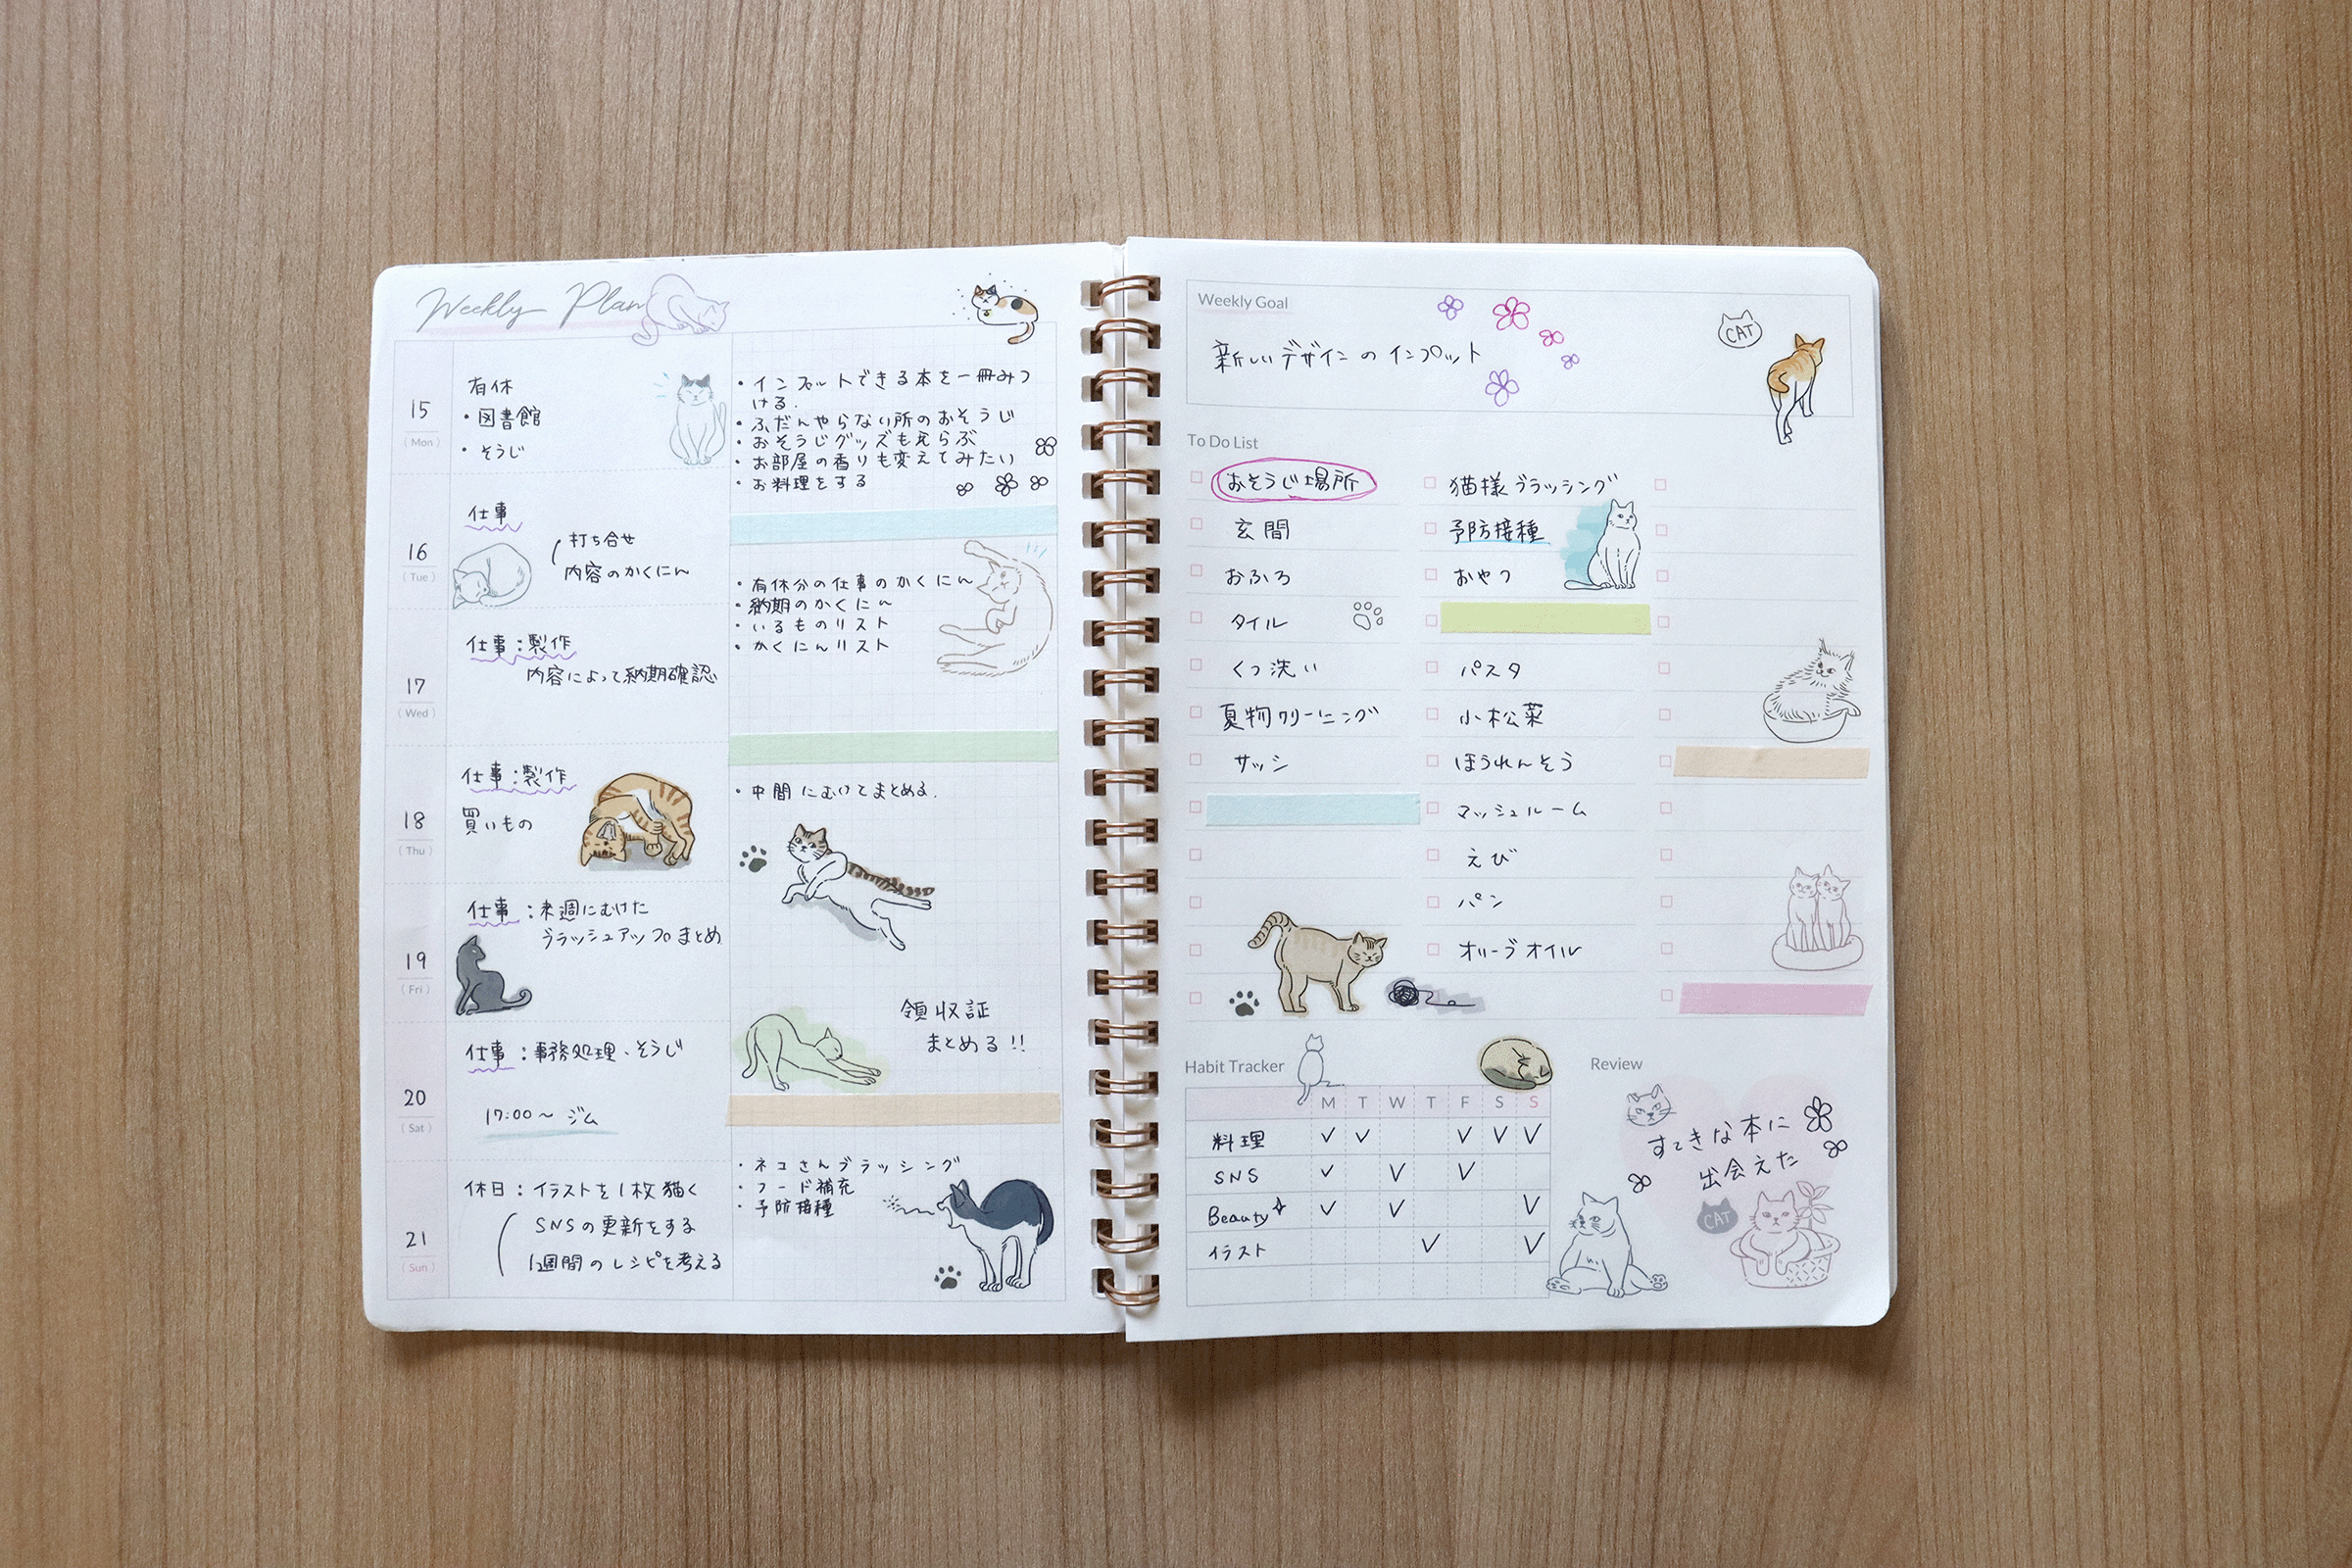 Weekly Plan
15
(Mon)
有休
・図書館
・そうじ
・インプットできる本を一冊みつ
ける.
・ふだんやらない所のおそうじ
・おそうじグッズもえらぶ
・お部屋の香りも変えてみたい
・お料理をする
16
(Tue)
仕事
打ち合せ
内容のかくにん
・有休分の仕事のかくにん
・納期のかくにん
・いるものリスト
・かくにんリスト
17
(Wed)
仕事:製作
内容によって納期確認
18
(Thu)
仕事:製作
買いもの
・中間にむけてまとめる.
19
(Fri)
仕事:来週にむけた
ブラッシュアップまとめ
領収証
まとめる!!
20
(Sat)
仕事:事務処理、そうじ
17:00~ ジム
21
(Sun)
休日:イラストを1枚猫く
SNSの更新をする
1週間のレシピを考える
・ネコさんブラッシング
・フード補充
・予防接種
Weekly Goal
新しいデザインのインプット
CAT
To Do List
おそうじ場所
玄関
おふろ
タイル
くつ洗い
夏物クリーニング
サッシ
猫様ブラッシング
予防接種
おやつ
パスタ
小松菜
ほうれんそう
マッシュルーム
えび
パン
オリーブオイル
Habit Tracker
M T W T F S S
料理 ✓ ✓ ✓ ✓ ✓
SNS ✓ ✓ ✓
Beauty ✓ ✓ ✓
イラスト ✓ ✓
Review
すてきな本に
出会えた
CAT